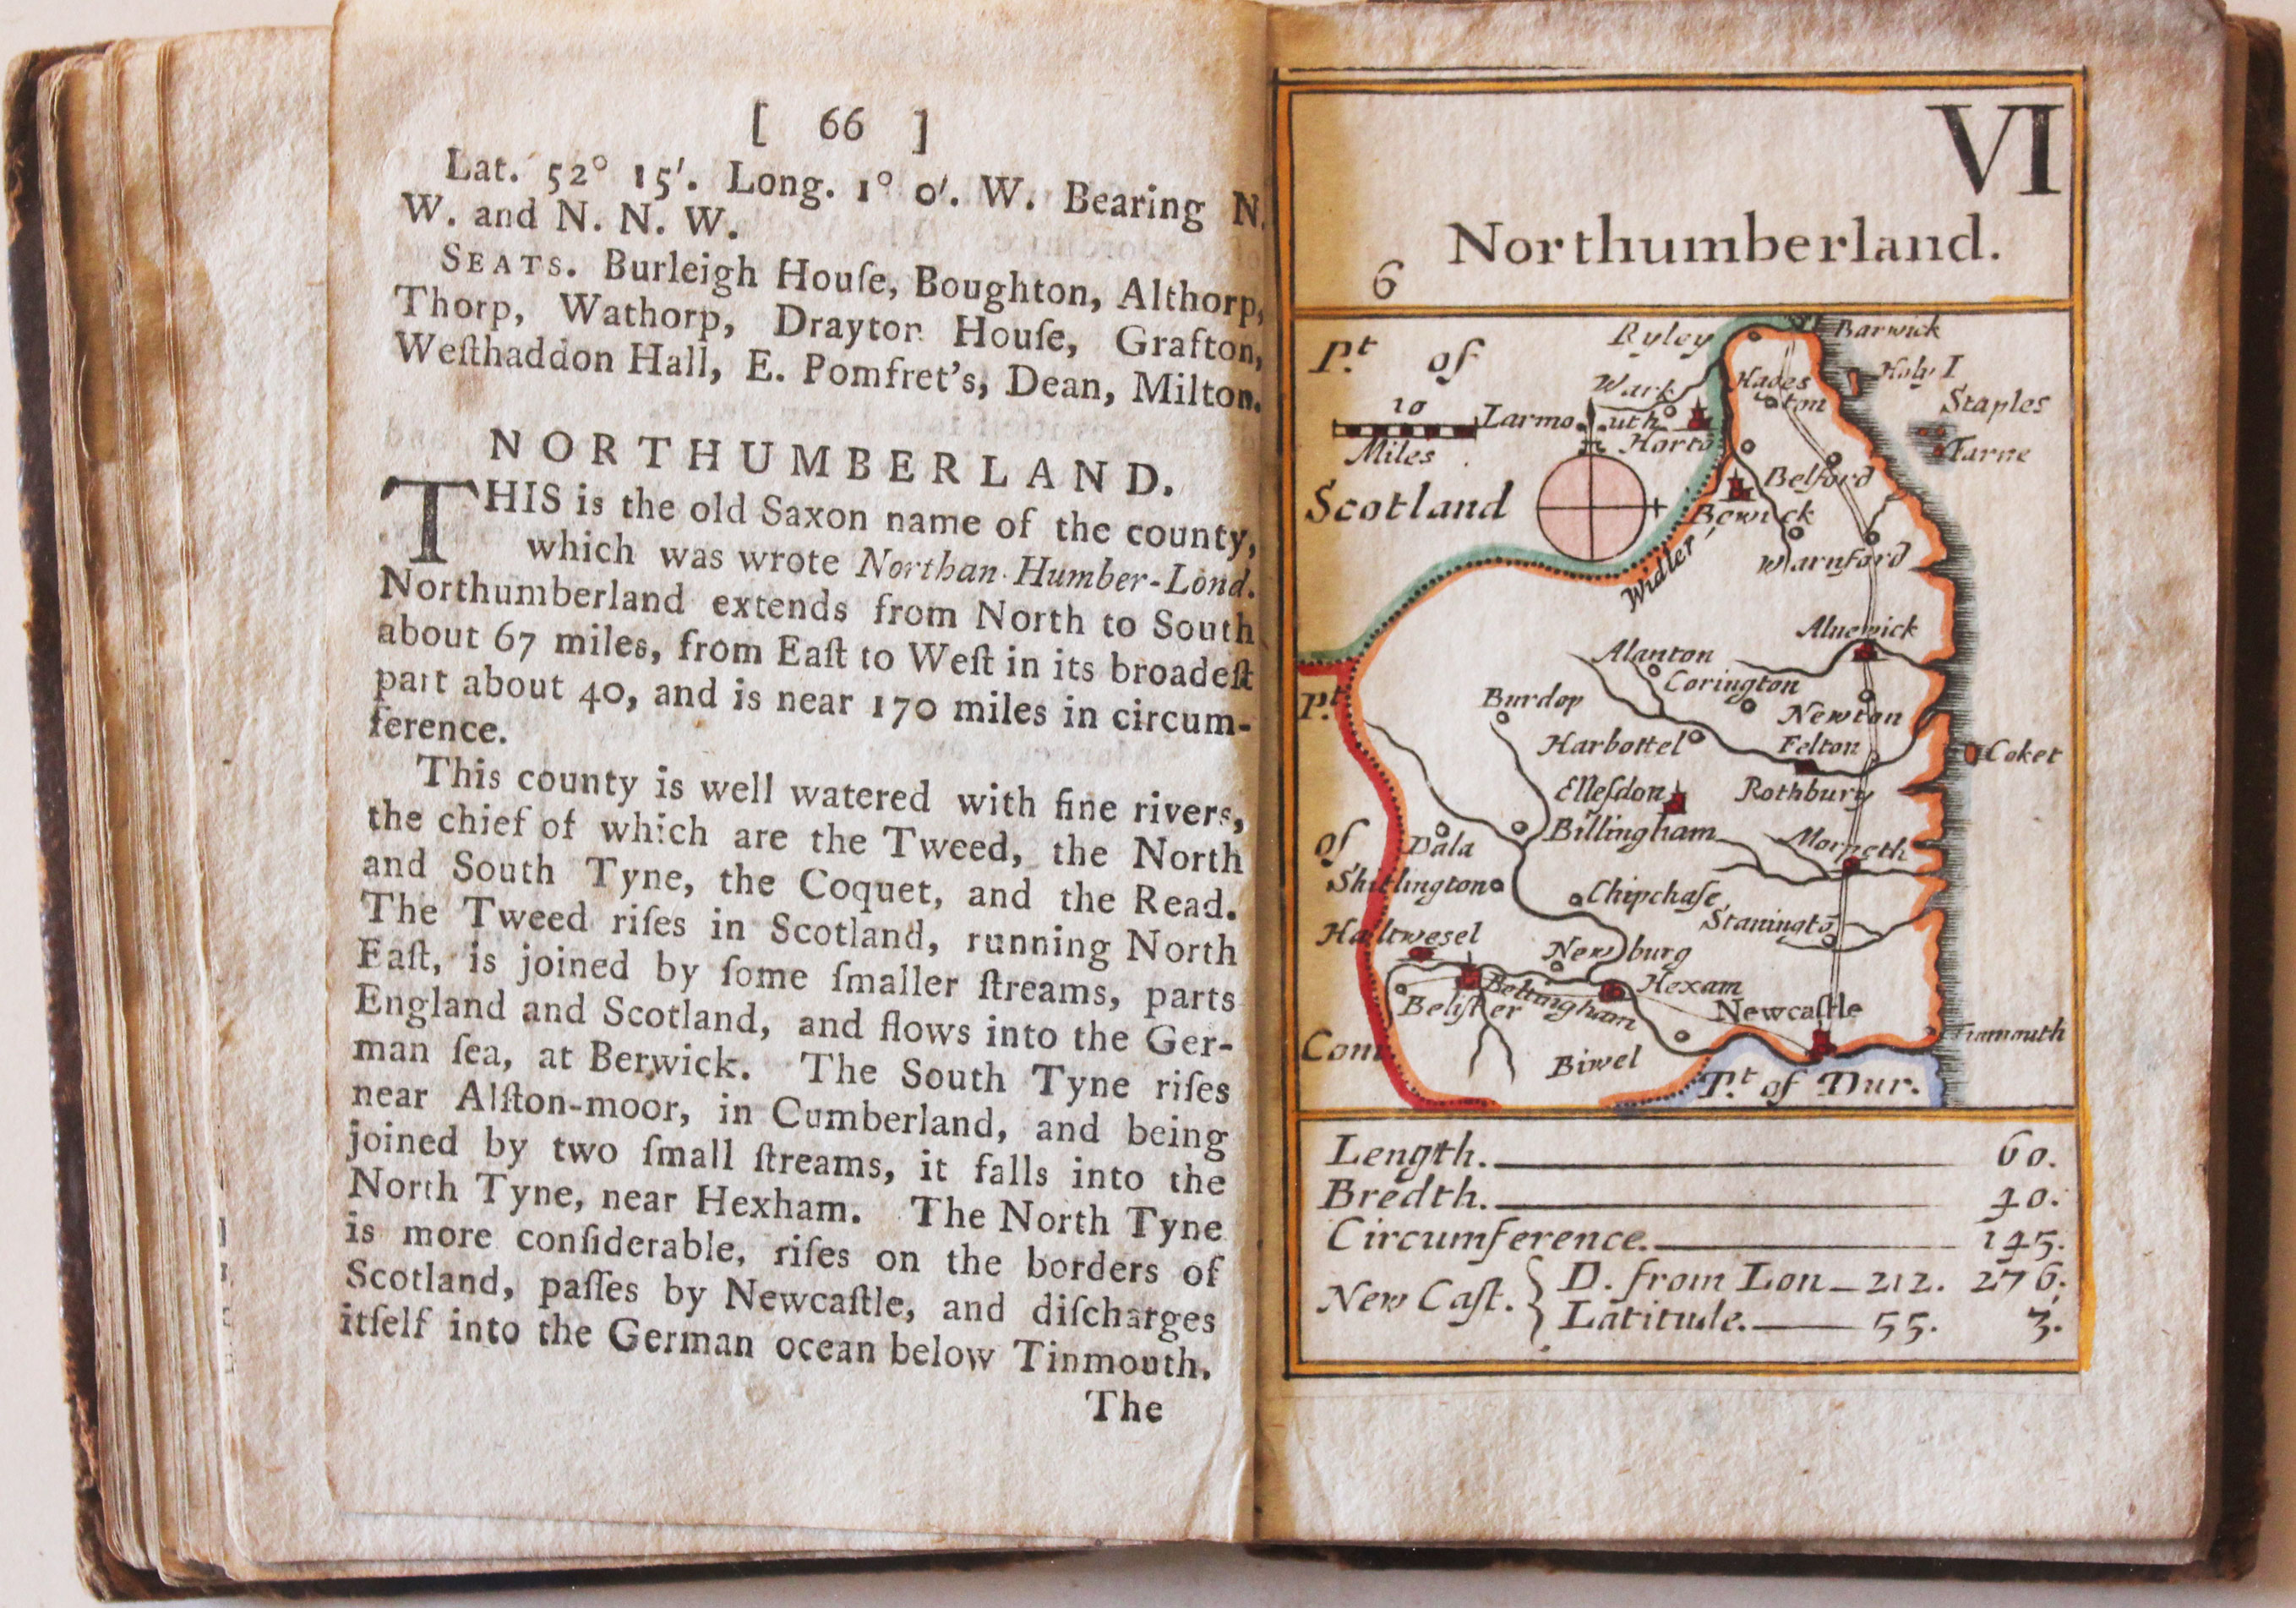 [ 66 ]
Lat. 52° 15′. Long. 1° 0′. W. Bearing N.
W. and N. N. W.
SEATS. Burleigh Houſe, Boughton, Althorp,
Thorp, Wathorp, Drayton Houſe, Grafton,
Weſthaddon Hall, E. Pomfret's, Dean, Milton.
NORTHUMBERLAND.
THIS is the old Saxon name of the county,
which was wrote Northan-Humber-Lond.
Northumberland extends from North to South
about 67 miles, from Eaſt to Weſt in its broadeſt
part about 40, and is near 170 miles in circum-
ference.
This county is well watered with fine rivers,
the chief of which are the Tweed, the North
and South Tyne, the Coquet, and the Read.
The Tweed riſes in Scotland, running North
Eaſt, is joined by ſome ſmaller ſtreams, parts
England and Scotland, and flows into the Ger-
man ſea, at Berwick. The South Tyne riſes
near Alſton-moor, in Cumberland, and being
joined by two ſmall ſtreams, it falls into the
North Tyne, near Hexham. The North Tyne
is more conſiderable, riſes on the borders of
Scotland, paſſes by Newcaſtle, and diſcharges
itſelf into the German ocean below Tinmouth.
The
VI
Northumberland.
6
Pt. of
Scotland
10
Miles
Ryley
Barwick
Holy I
Staples
Farne
Wark
Hageston
Larmouth
Horto
Belford
Bewick
Warnford
Widler
Alnewick
Alanton
Corington
Burdop
Newton
Harbottel
Felton
Coket
Elleſdon
Rothbury
Billingham
Morpeth
Dala
Shitlington
Chipchaſe
Staningto
Haltwesel
Newburg
Hexam
Beltingham
Beliſter
Newcaſtle
Tinmouth
Biwel
Pt. of Dur.
Pt. of Com
Length. 60.
Bredth. 40.
Circumference. 145.
New Caſt. } D. from Lon 212. 276.
Latitude. 55. 3.